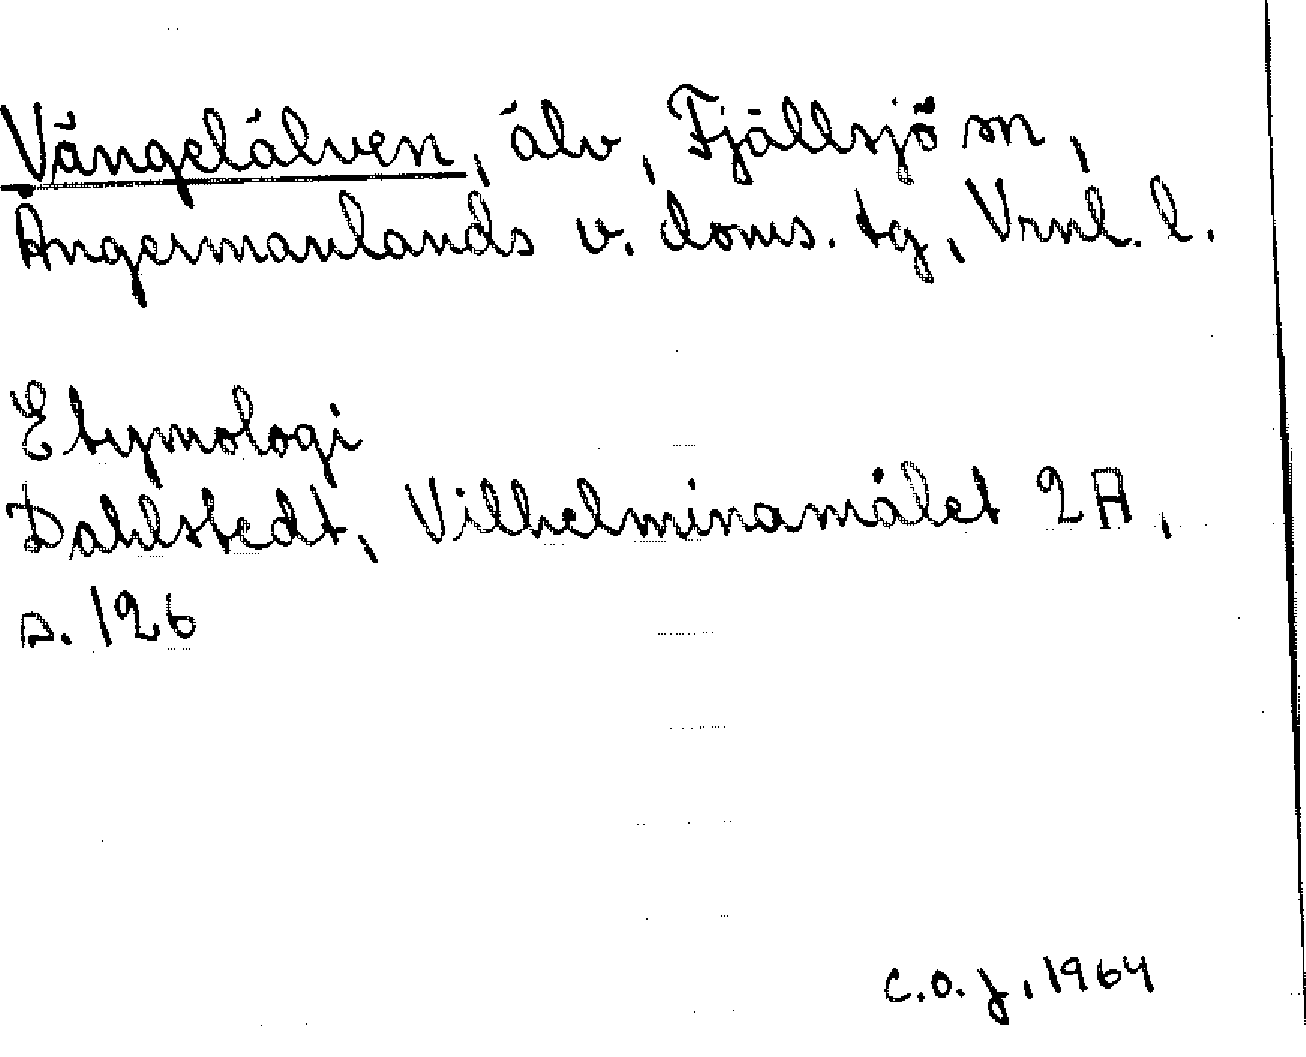 Vängelälven, älv, Fjällsjö sn,
Ångermanlands v. doms. tg, Vrnl. l.
Etymologi
Dahlstedt, Vilhelminamålet 2A,
s. 126
C.O.J. 1964